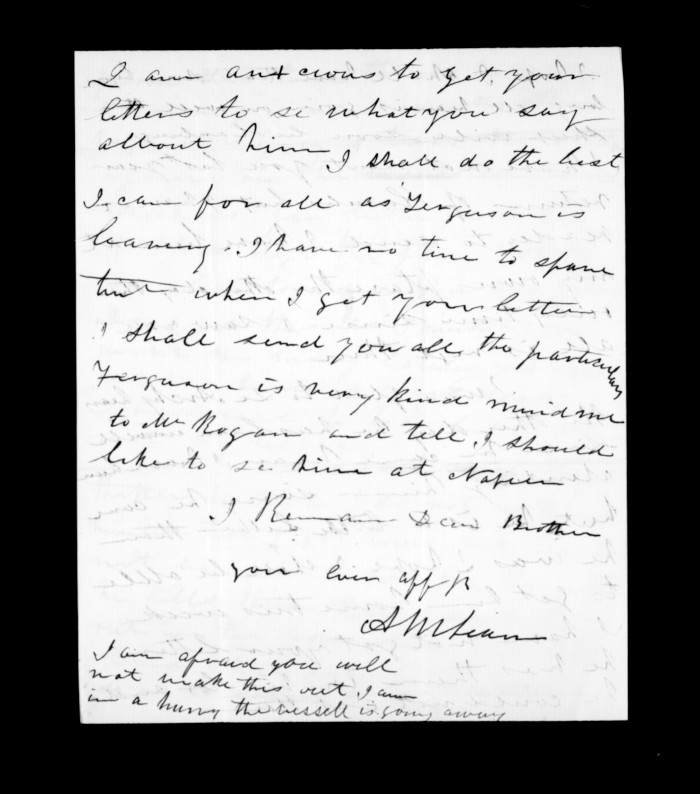 I am anxcious to get your
letters to se what you say
allbout him I shall do the best
I can for all as Ferguson is
leaving. I have no time to spare
but when I get your letters
I shall send you all the particulars
Ferguson is very kind mind me
to Mr Rogan and tell, I should
like to se him at Napier
I Remain Dear Brother
your lovin aff
A McLean
I am afraid you will
not make this out I am
in a hurry the vessell is going away